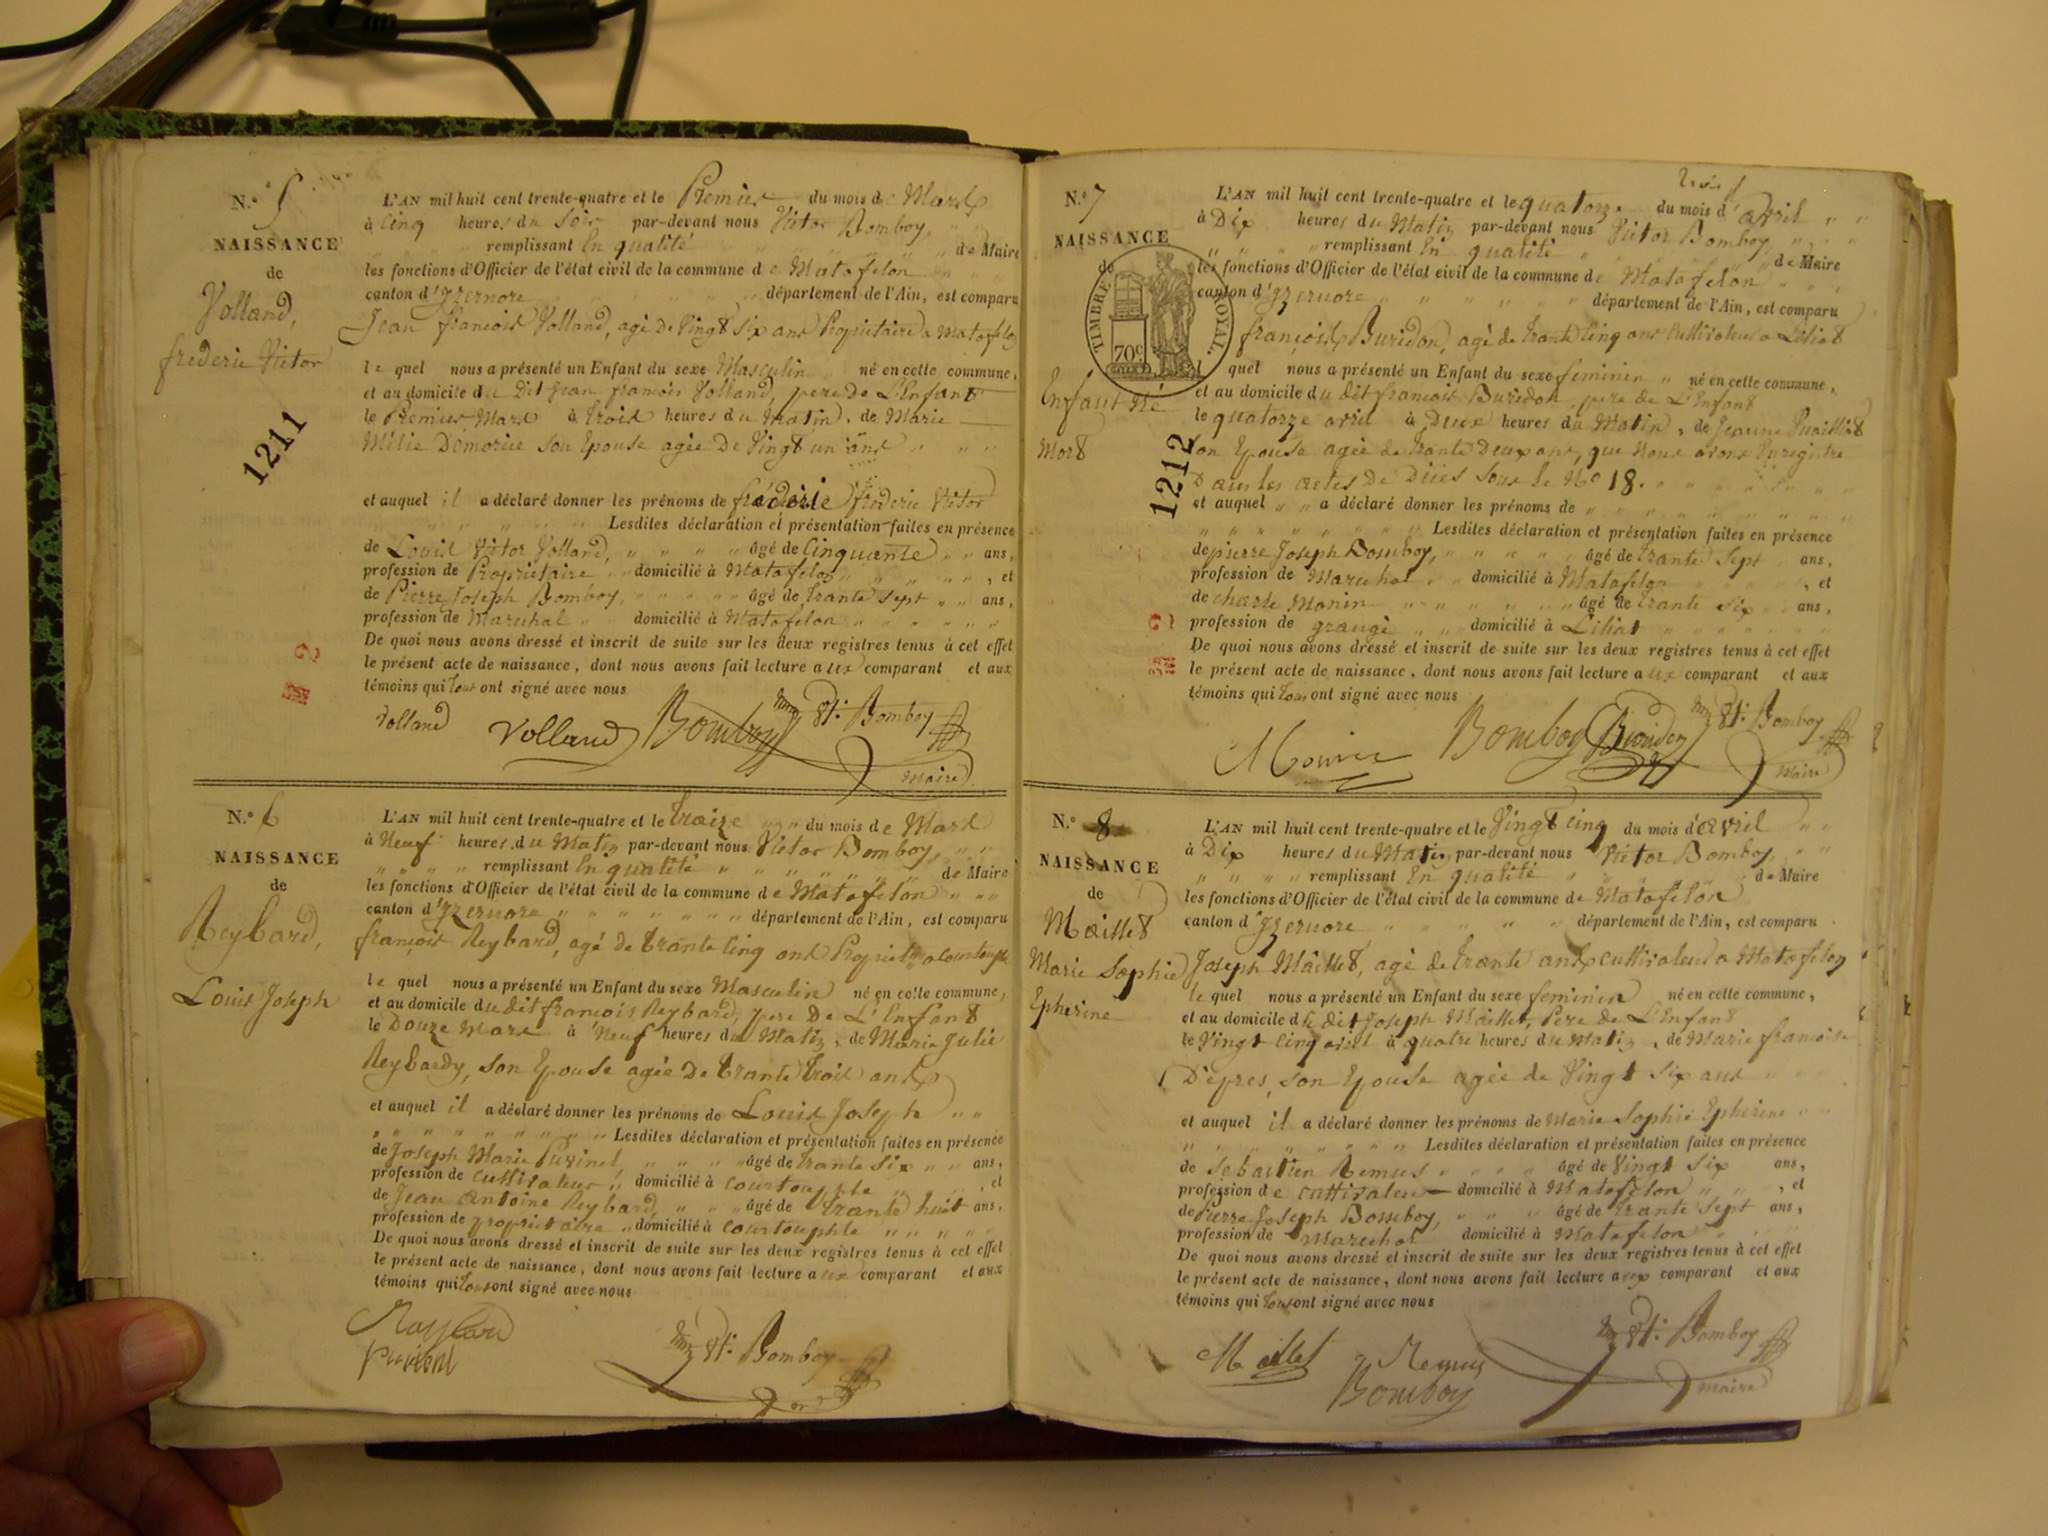 N.º 5
NAISSANCE
de
Volland,
frederic Victor
1211
L'AN mil huit cent trente-quatre et le Premier du mois de Mars
à Cinq heures du Soir par-devant nous Victor Bomboy,
remplissant En qualité de Maire
les fonctions d'Officier de l'état civil de la commune de Matafelon
canton d'Yzernore département de l'Ain, est comparu
Jean françois Volland, agé De Vingt six ans Propriétaire a Matafelon
le quel nous a présenté un Enfant du sexe Masculin né en cette commune,
et au domicile du Dit Jean francois Volland, pere De L'Enfant
le Premier Mars à trois heures du Matin, de Marie
Mélie Demorice son Epouse agée De Vingt un ans
et auquel il a déclaré donner les prénoms de fréderic frederic Victor
Lesdites déclaration et présentation faites en présence
de Louis Victor Volland, âgé de Cinquante ans,
profession de Propriétaire domicilié à Matafelon, et
de Pierre Joseph Bomboy, âgé de trante sept ans,
profession de Marechal domicilié à Matafelon
De quoi nous avons dressé et inscrit de suite sur les deux registres tenus à cet effet
le présent acte de naissance, dont nous avons fait lecture aux comparant et aux
témoins qui tous ont signé avec nous
Volland Volland Bomboy Bomboy
Maire
N.º 6
NAISSANCE
de
Reybard,
Louis Joseph
L'AN mil huit cent trente-quatre et le traize du mois de Mars
à Neuf heures du Matin par-devant nous Victor Bomboy,
remplissant En qualité de Maire
les fonctions d'Officier de l'état civil de la commune de Matafelon
canton d'Yzernore département de l'Ain, est comparu
françois Reybard, agé de trante Cinq ans Propriet a Courtouphle
le quel nous a présenté un Enfant du sexe Masculin né en cette commune,
et au domicile du dit françois Reybard, pere De L'Enfant
le Douze Mars à Neuf heures du Matin, de Marie Julie
Reybardy, son Epouse agée De trante trois ans
et auquel il a déclaré donner les prénoms de Louis Joseph
Lesdites déclaration et présentation faites en présence
de Joseph Marie Puvinel âgé de trante six ans,
profession de Cultivateur domicilié à Courtouphle, et
de Jean Antoine Reybard, âgé de trante huit ans,
profession de proprietaire domicilié à Courtouphle
De quoi nous avons dressé et inscrit de suite sur les deux registres tenus à cet effet
le présent acte de naissance, dont nous avons fait lecture aux comparant et aux
témoins qui tous ont signé avec nous
Reybard
Bomboy
N.º 7
NAISSANCE
de
Enfant Né
Mort
1212
TIMBRE ROYAL.
70c
L'AN mil huit cent trente-quatre et le quatorze du mois d'avril
à Dix heures du Matin par-devant nous Victor Bomboy,
remplissant En qualité de Maire
les fonctions d'Officier de l'état civil de la commune de Matafelon
canton d'Yzernore département de l'Ain, est comparu
françois Buridon, agé de trante Cinq ans Cultivateur a Liliat
l quel nous a présenté un Enfant du sexe feminin né en cette commune,
et au domicile du dit francois Buridon pere de L'Enfant
le quatorze avril à Deux heures du Matin, de Jeanne
son Epouse agée de trante Deux ans, que Nous avons Enregistré
Dans les actes De Déces sous le No 18.
et auquel a déclaré donner les prénoms de
Lesdites déclaration et présentation faites en présence
de pierre Joseph Bomboy, âgé de trante Sept ans,
profession de Marechal domicilié à Matafelon, et
de charle Monin âgé de trante six ans,
profession de grangé domicilié à Liliat
De quoi nous avons dressé et inscrit de suite sur les deux registres tenus à cet effet
le présent acte de naissance, dont nous avons fait lecture aux comparant et aux
témoins qui tous ont signé avec nous
Monin Bomboy Buridon Bomboy
Maire
N.º 8
NAISSANCE
de
Maillet
Marie Sophie
Epherine
L'AN mil huit cent trente-quatre et le Vingt cinq du mois d'avril
à Dix heures du Matin par-devant nous Victor Bomboy,
remplissant En qualité de Maire
les fonctions d'Officier de l'état civil de la commune de Matafelon
canton d'Yzernore département de l'Ain, est comparu
Joseph Maillet, agé de trante ans cultivateur a Matafelon
le quel nous a présenté un Enfant du sexe feminin né en cette commune,
et au domicile du dit Joseph Maillet, Pere de L'Enfant
le Vingt Cinq avril à quatre heures du Matin, de Marie francoise
Dépres, son Epouse agée de Vingt six ans
et auquel il a déclaré donner les prénoms de Marie Sophie Epherine
Lesdites déclaration et présentation faites en présence
de Sebastien Remus âgé de Vingt six ans,
profession de cultivateur domicilié à Matafelon, et
de Pierre Joseph Bomboy, âgé de trante Sept ans,
profession de Marechal domicilié à Matafelon
De quoi nous avons dressé et inscrit de suite sur les deux registres tenus à cet effet
le présent acte de naissance, dont nous avons fait lecture aux comparant et aux
témoins qui tous ont signé avec nous
Maillet Remus Bomboy
Bomboy maire